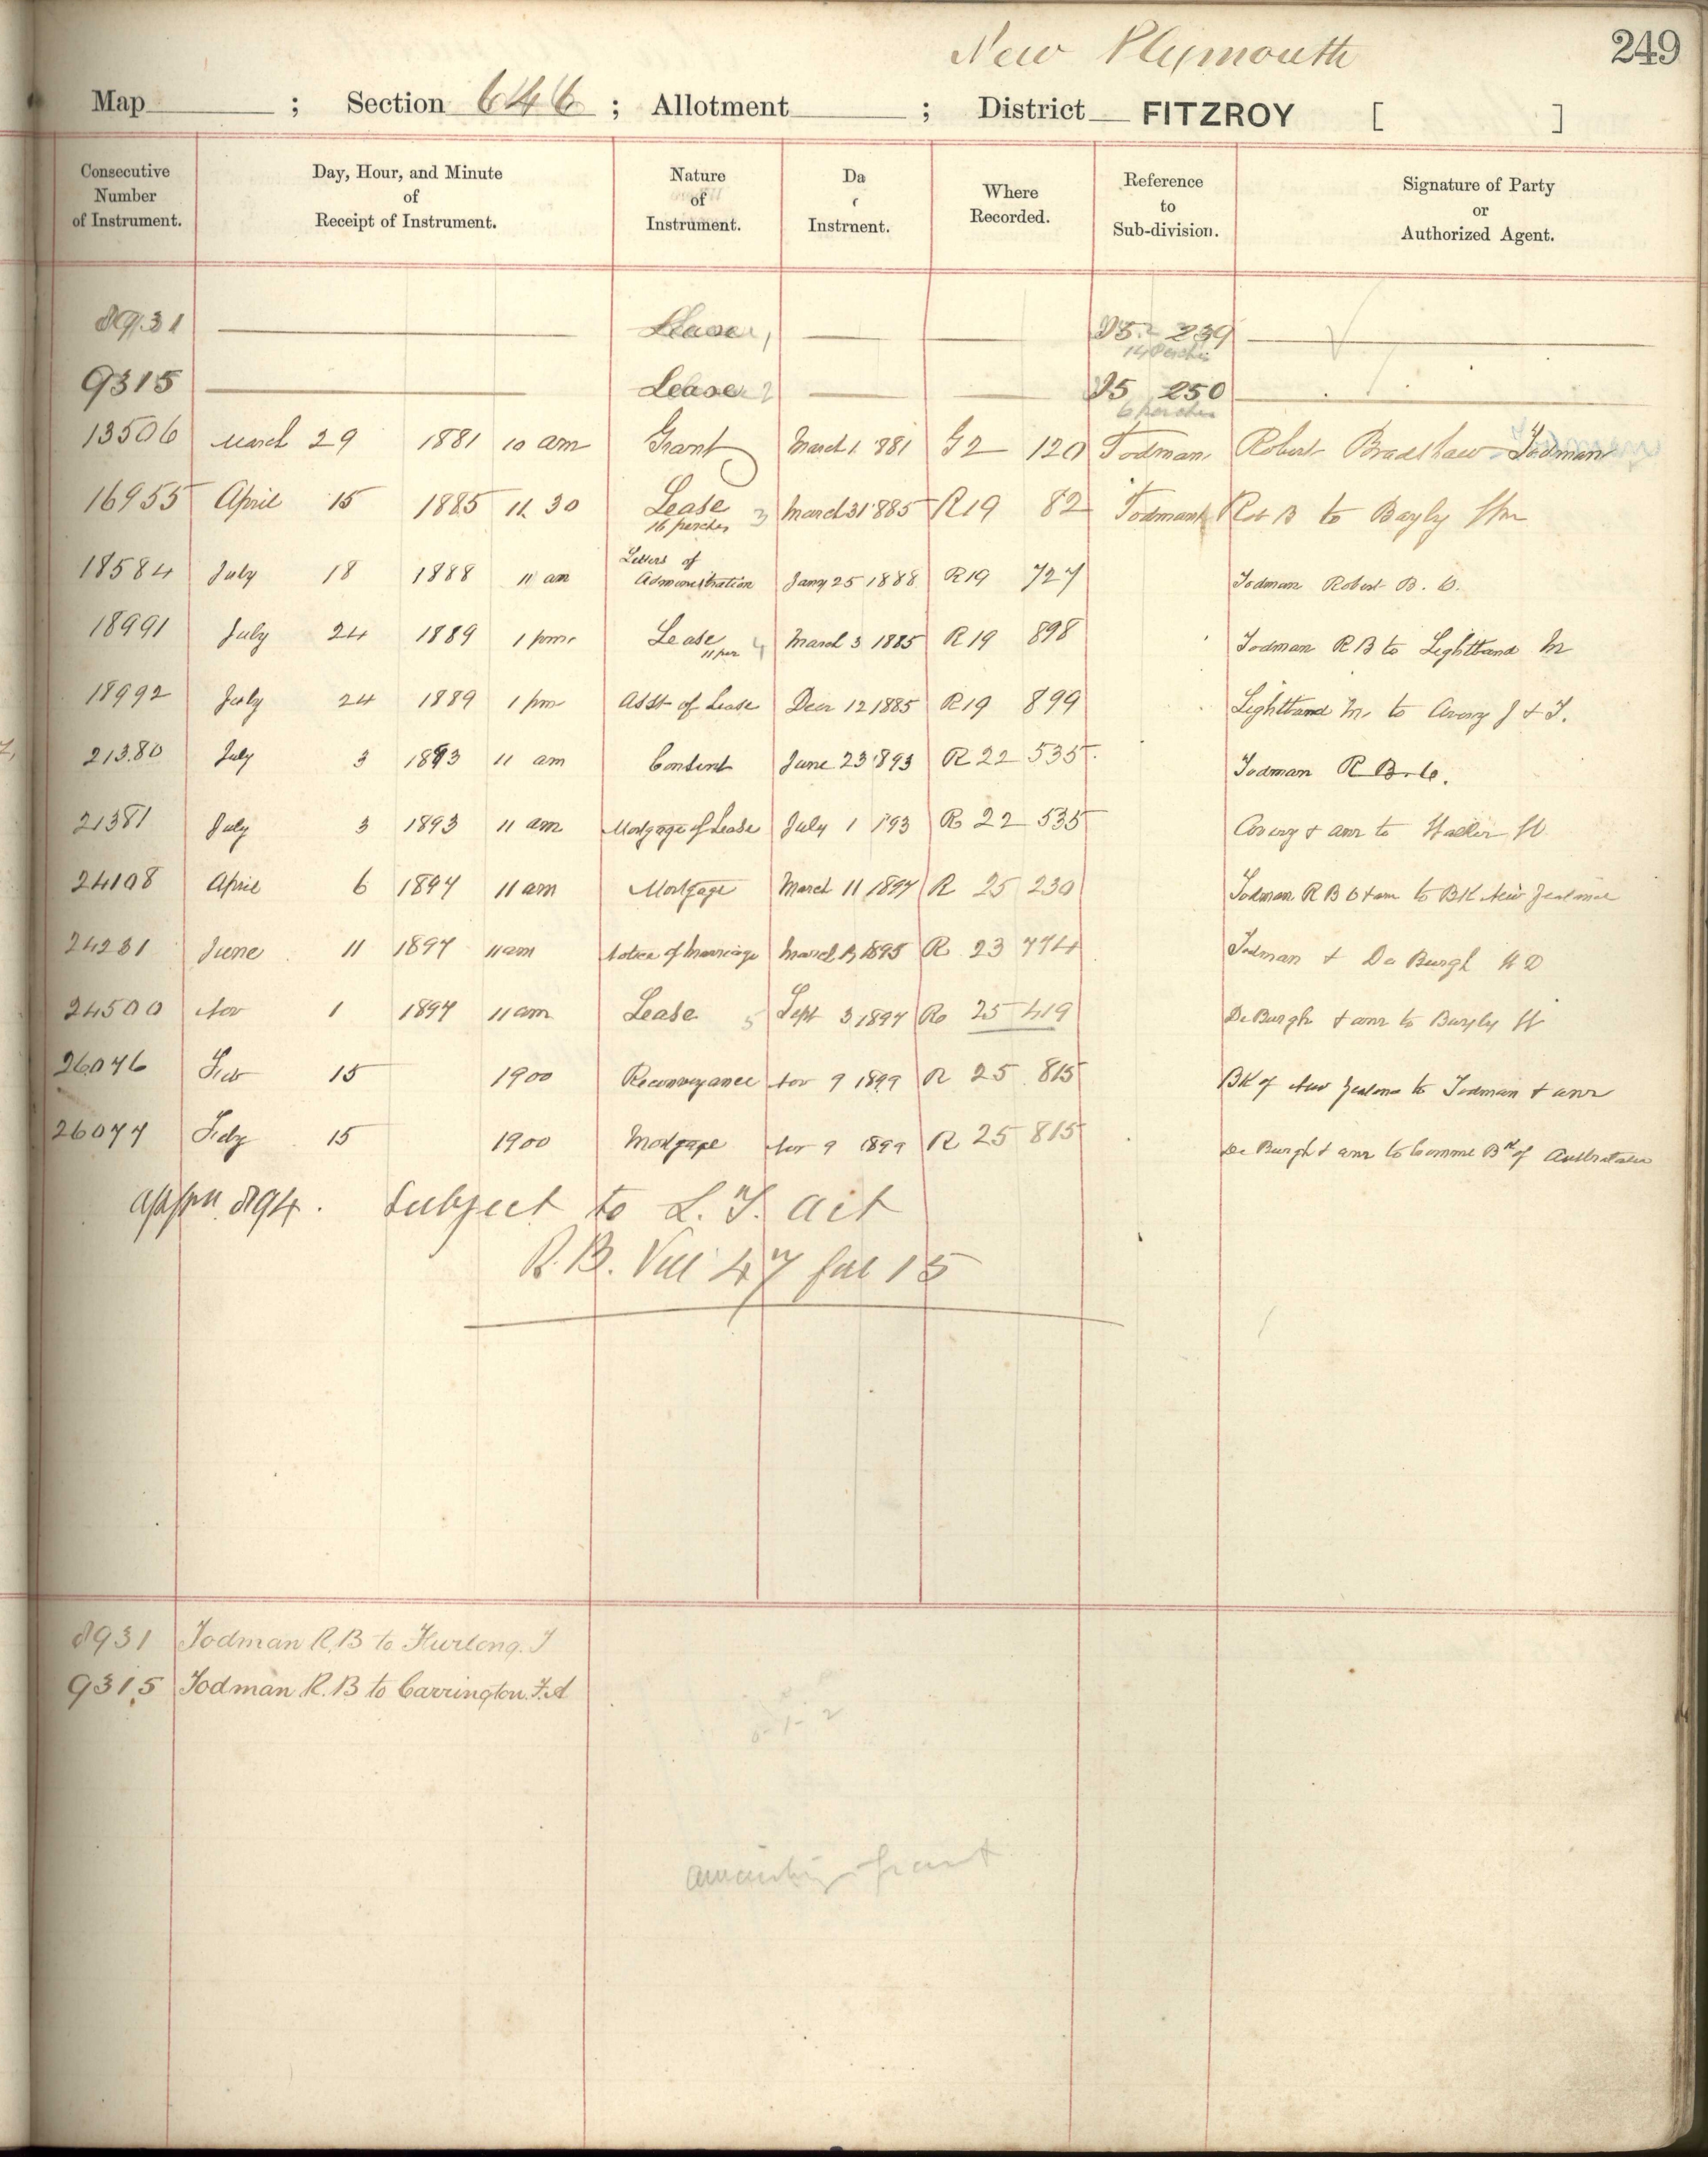 New Plymouth
249
Map ; Section 646 ; Allotment ; District FITZROY [ ]
Consecutive Number of Instrument.
Day, Hour, and Minute of Receipt of Instrument.
Nature of Instrument.
Da Instrnent.
Where Recorded.
Reference to Sub-division.
Signature of Party or Authorized Agent.
8931 Lease 1 D5 239
14 Perches
9315 Lease 2 D5 250
6 perches
13506 March 29 1881 10 am Grant March 1 1881 G2 120 Todman Robert Bradshaw Todman
16955 April 15 1885 11 30 Lease 3 March 31 1885 R19 82 Todman Rob B to Bayly
16 perches
18584 July 18 1888 11 am Letters of Administration Jany 25 1888 R19 727 Todman Robert B. C.
18991 July 24 1889 1 pm Lease 4 March 3 1885 R19 898 Todman R B to Lightband M
11 per
18992 July 24 1889 1 pm Asst of Lease Decr 12 1885 R19 899 Lightband M. to Avery J & T.
21380 July 3 1893 11 am Consent June 23 1893 R22 535 Todman R B. C.
21381 July 3 1893 11 am Mortgage of Lease July 1 1893 R 22 535 Avery & anr to
24108 April 6 1897 11 am Mortgage March 11 1897 R 25 230 Todman R B C & anr to BK New Zealand
24281 June 11 1897 11 am Notice of Marriage March 1895 R 23 774 Todman & De Burgh
24500 Nov 1 1897 11 am Lease 5 Sept 3 1897 R 25 419 De Burgh & anr to Bayly
26076 Feb 15 1900 Reconveyance Nov 9 1899 R 25 815 BK of New Zealand to Todman & anr
26077 Feby 15 1900 Mortgage Nov 9 1899 R 25 815 De Burgh & anr to Comml Bk of Australasia
appn 894. Subject to L. T. Act
R.B. Vol 47 fol 15
8931 Todman R.B to Furlong. J
9315 Todman R.B to Carrington. F.A
grant